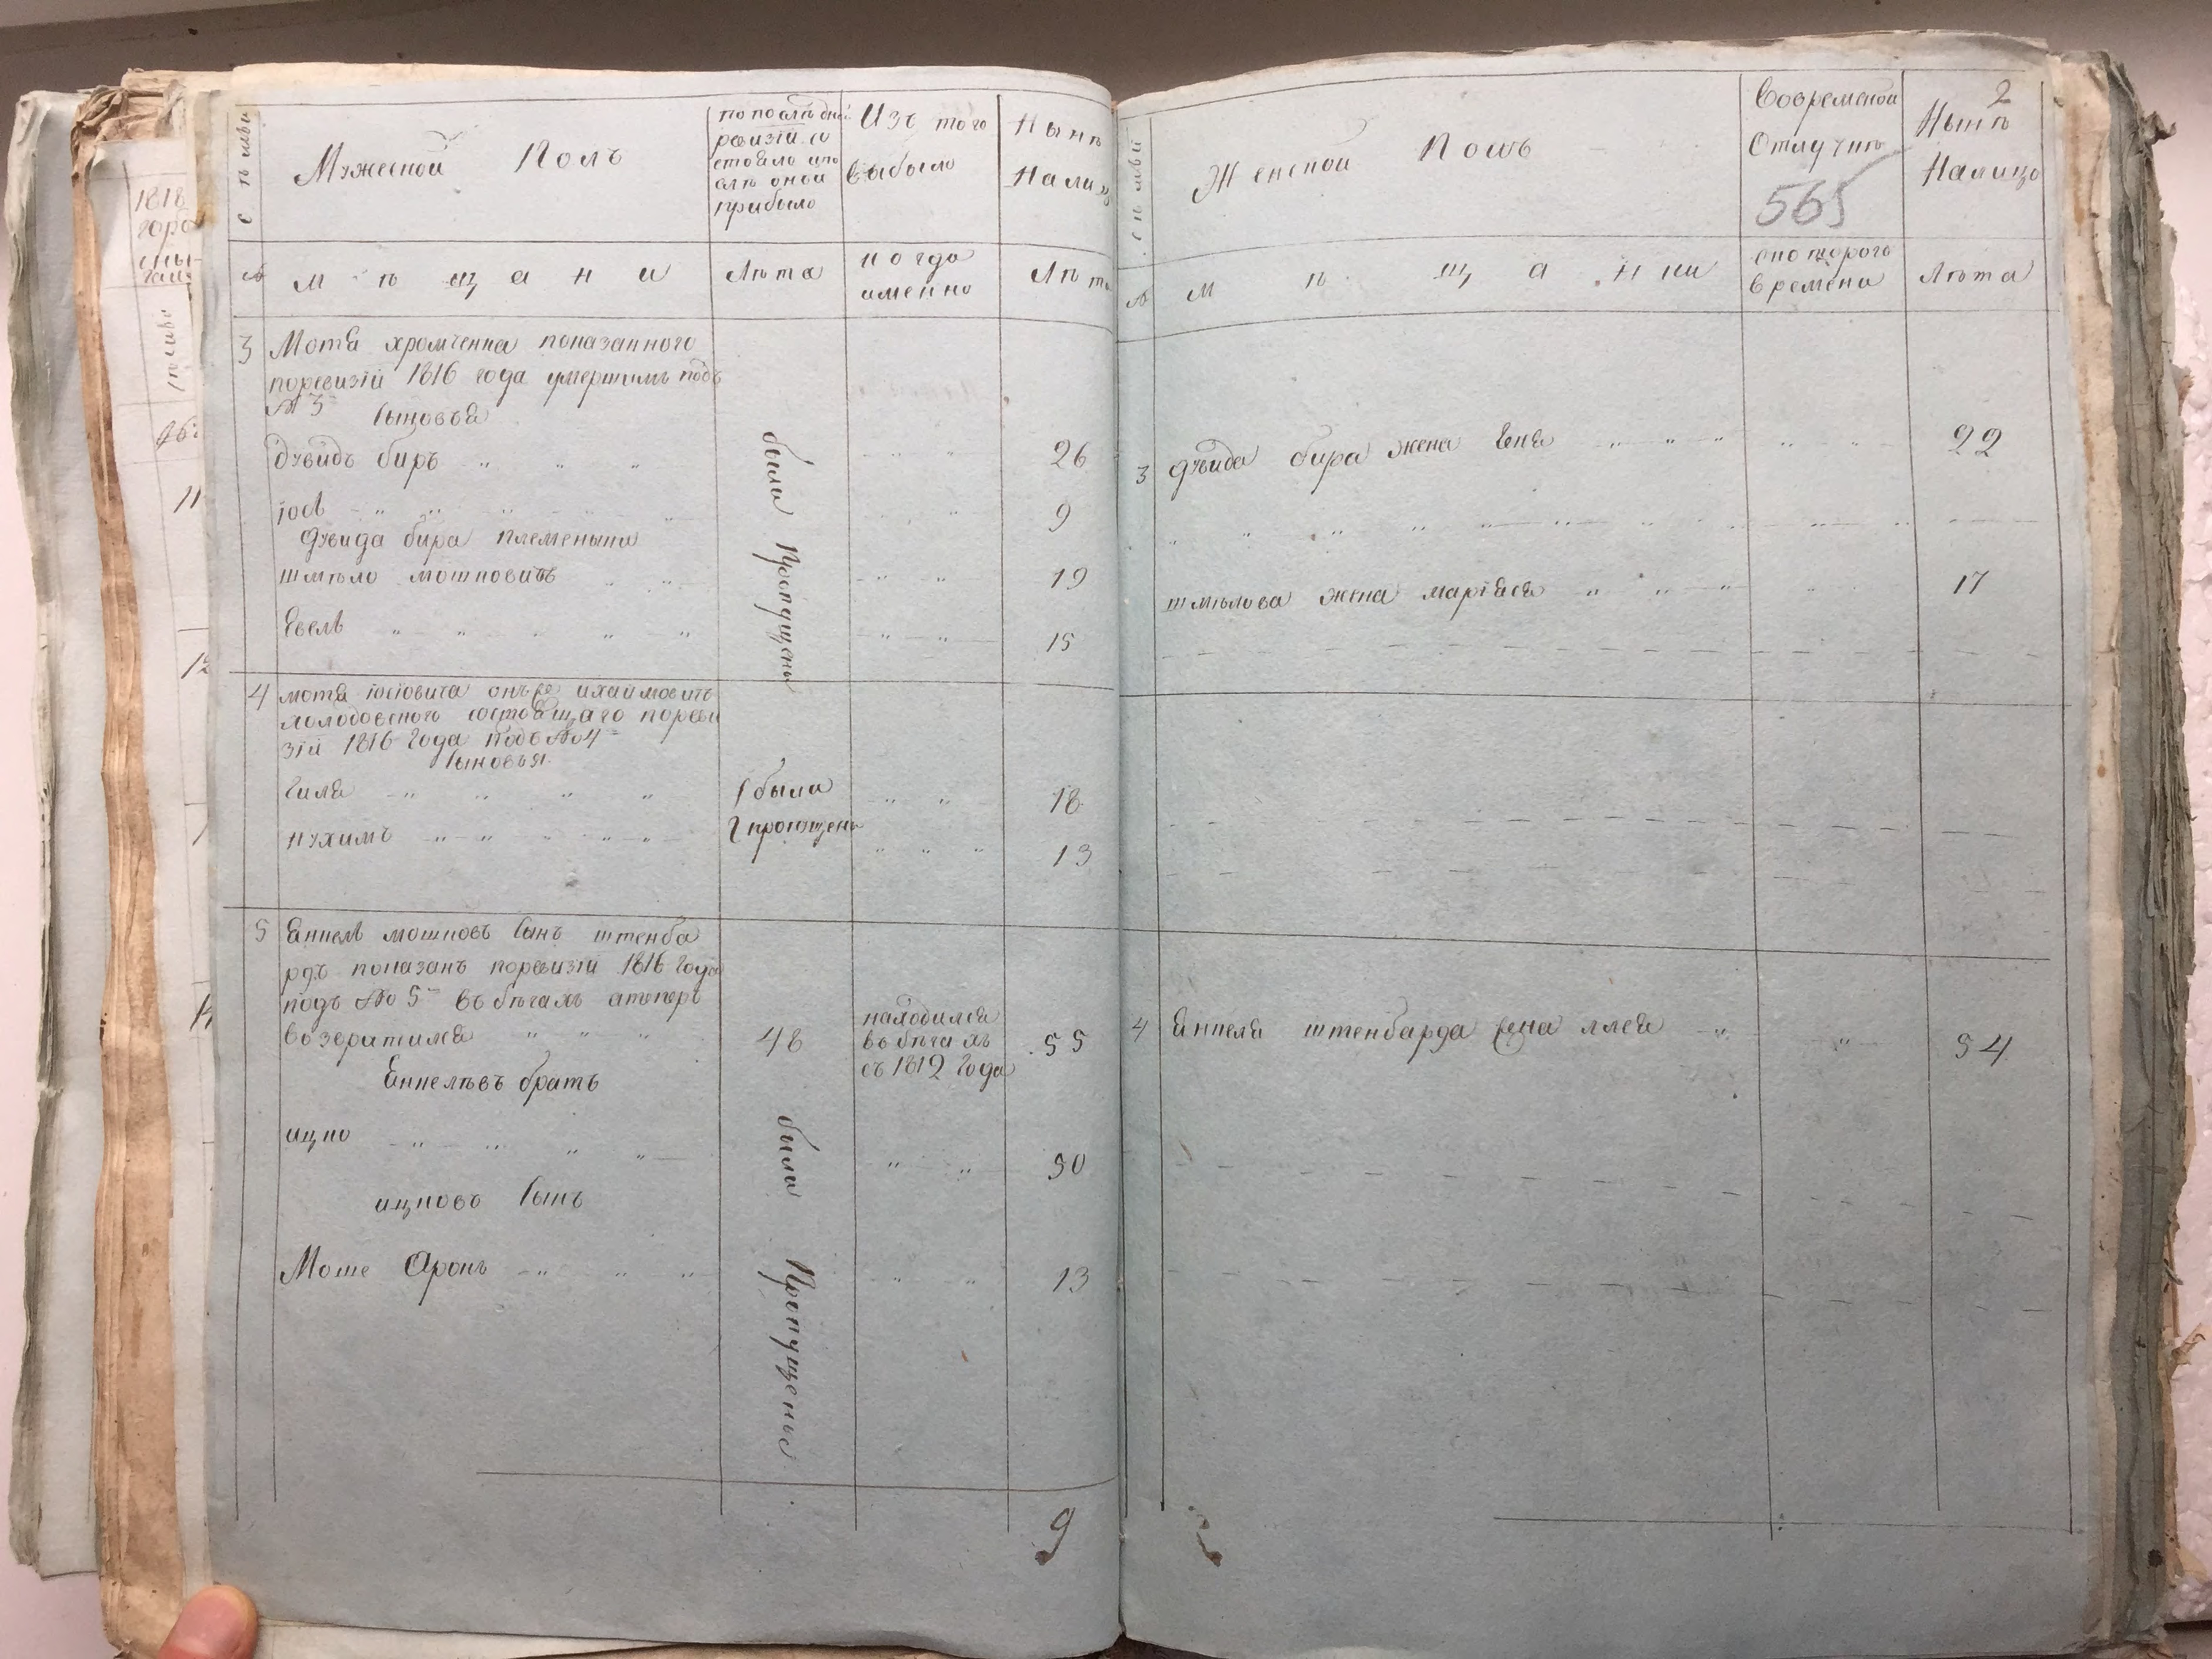 1818
горо
11
12
14
Семьи
Мужеской Полъ
попослѣдней
ревизіи со
стояло ипо
слѣ оной
прибыло
Изъ того
выбыло
Нынѣ
Налицо
№
мѣщани
Лѣта
когда
именно
Лѣта
3
Мотя хромченка показанного
поревизіи 1816 года умершимъ подъ
№ 3
сыновья
дувидъ биръ
26
іосъ
9
дувида бира племеныки
шмѣло мошковичъ
19
Евель
15
были Пропущены
4
мотя іосіовича онъже ихаймовичъ
холодовского состоящаго по реви
зіи 1816 года подъ № 4
сыновья
Гиля
были
18
нухимъ
пропущены
13
5
Янкель мошковъ сынъ штенба
рдъ показанъ поревизіи 1816 года
подъ № 5 въ бѣгахъ атеперь
возвратился
48
находился
въ бѣгахъ
съ 1812 года
55
Янкелѣвъ братъ
ицко
50
ицковъ сынъ
Моше Аронъ
13
были Пропущены
9
Семьи
Женской Полъ
Вовременой
Отлучкѣ
565
2
Нынѣ
Налицо
№
мѣщанки
скоторого
времени
Лѣта
3
дувида бира жена Еня
22
шмѣлова жена маріяся
17
4
Янкеля штенбарда жена ллея
54